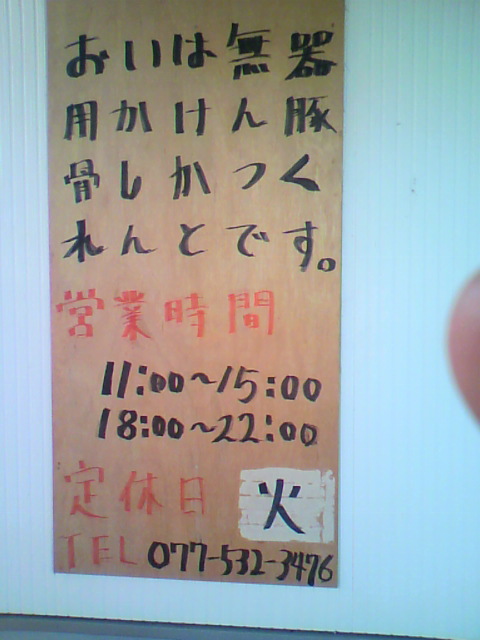 おいは無器
用かけん豚
骨しかつく
れんとです。
営業時間
11:00〜15:00
18:00〜22:00
定休日 火
TEL 077-532-3476